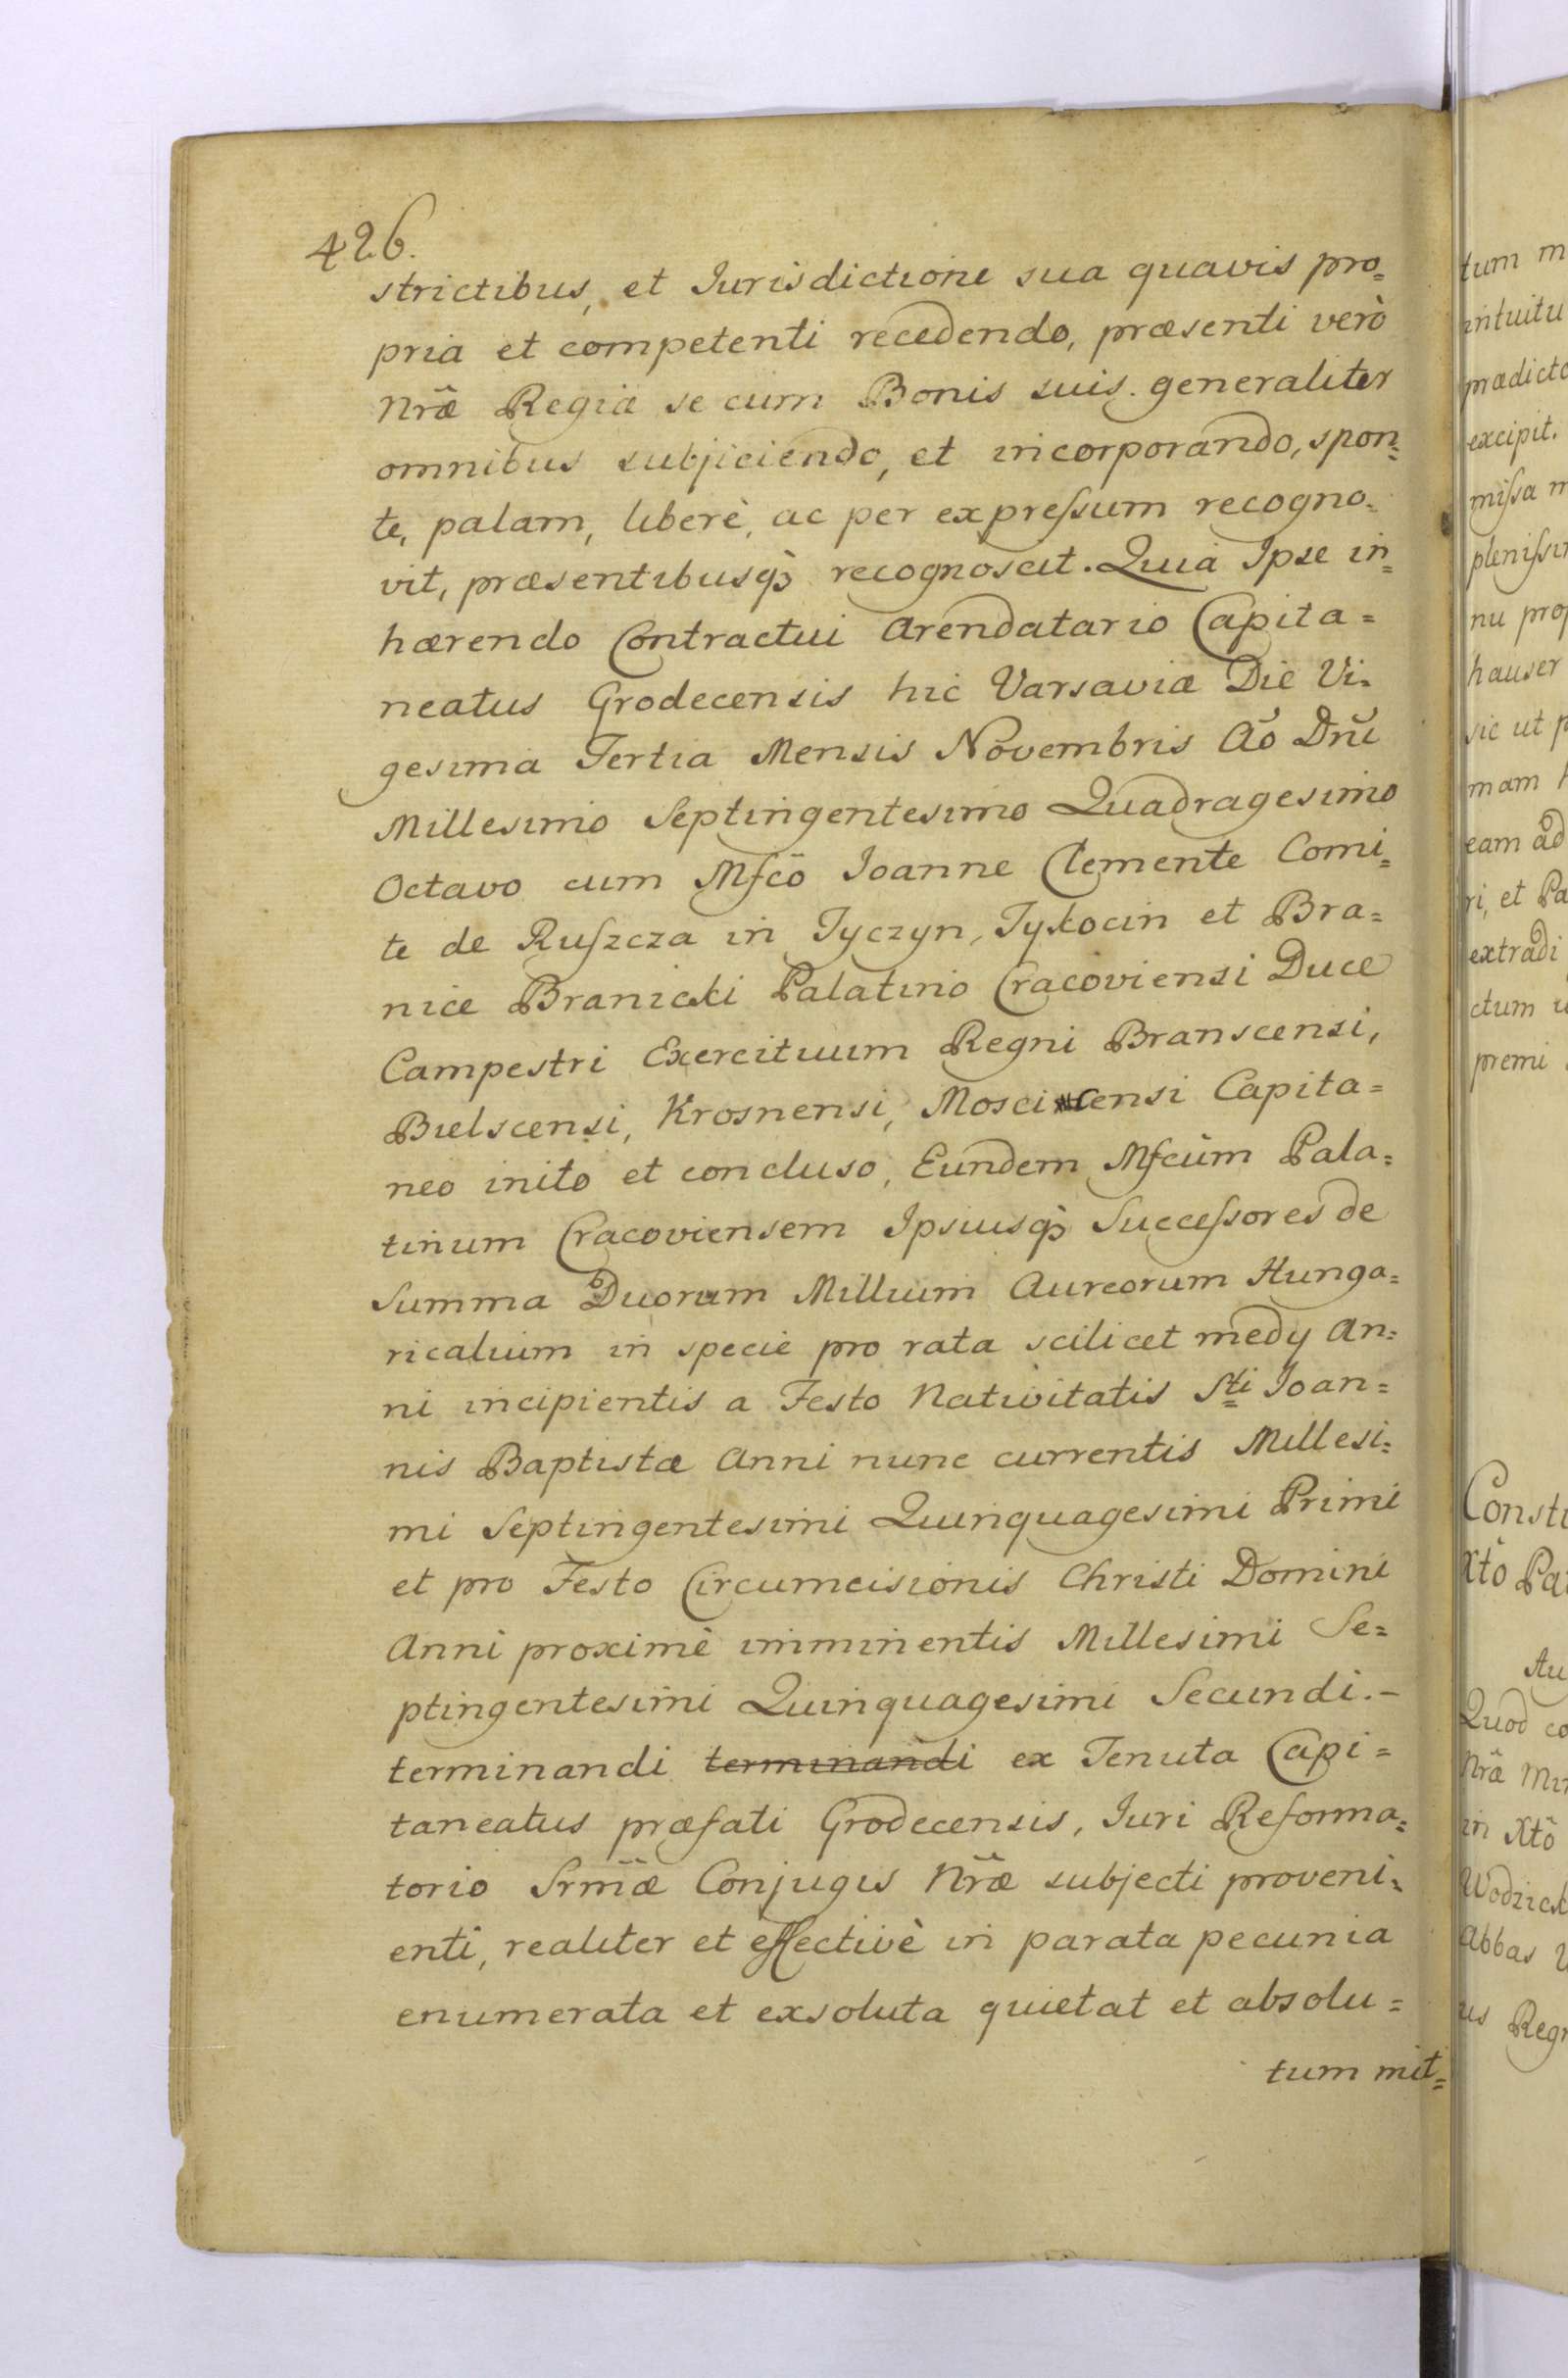 426.
strictibus, et Jurisdictione sua quavis pro=
pria et competenti recedendo, præsenti verò
Nræ Regiæ se cum Bonis suis generaliter
omnibus subjiciendo, et incorporando, spon=
te, palam, liberè, ac per expreſsum recogno=
vit, præsentibusq́ꝫ recognoscit. Quia Ipse in=
hærendo Contractui Arendatario Capita=
neatus Grodecensis hic Varsaviæ Die Vi=
gesima Tertia Mensis Novembris Aõ Dñi
Millesimo Septingentesimo Quadragesimo
Octavo cum Mfcõ Joanne Clemente Comi=
te de Ruſzcza in Tyczyn, Tykocin et Bra=
nice Branicki Palatino Cracoviensi Duce
Campestri Exercituum Regni Branscensi,
Bielscensi, Krosnensi, Moscicensi Capita=
neo inito et concluso, Eundem Mfcũm Pala=
tinum Cracoviensem Ipsiusq́ꝫ Succeſsores de
Summa Duorum Millium Aureorum Hunga=
ricalium in specie pro rata scilicet medy An=
ni incipientis a Festo Nativitatis Sti Joan=
nis Baptistæ Anni nunc currentis Millesi=
mi Septingentesimi Quinquagesimi Primi
et pro Festo Circumcisionis Christi Domini
Anni proximè imminentis Millesimi Se=
ptingentesimi Quinquagesimi Secundi.-
terminandi terminandi ex Tenuta Capi=
taneatus præfati Grodecensis, Juri Reforma=
torio Srmæ Conjugis Nræ subjecti proveni=
enti, realiter et effectivè in parata pecunia
enumerata et exsoluta quietat et absolu=
tum mit=
tum m
intuitu
prædicto
excipit.
miſsa m
pleniſsi
nu prop
hauser
sic ut p
mam h
eam ad
ri, et Pa
extradi
ctum
premi
Consti
Xtõ Pa
Au
Quod co
Nræ
in Xtõ
Wodzick
Abbas
us Regn